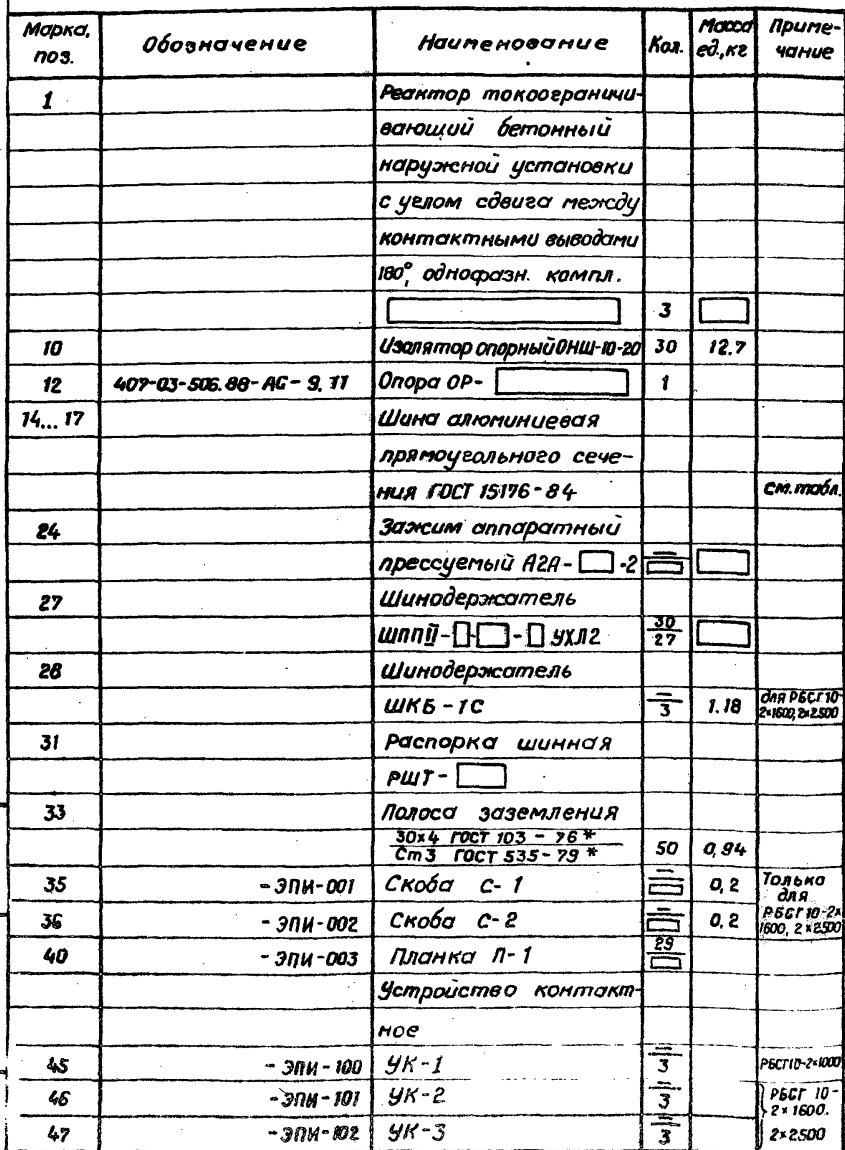 Марка, поз. Обозначение Наименование Кол. Масса ед., кг Примечание
1 Реактор токоограничи-
вающий бетонный
наружной установки
с углом сдвига между
контактными выводами
180°, однофазн. компл.
3
10 Изолятор опорный ОНШ-10-20 30 12.7
12 407-03-506.88-АС-9.11 Опора ОР- 1
14...17 Шина алюминиевая
прямоугольного сече-
ния ГОСТ 15176-84 см. табл.
24 Зажим аппаратный
прессуемый А2А- -2 —
27 Шинодержатель
ШППІІ- - - УХЛ2 30/27
28 Шинодержатель
ШКБ-1С —/3 1.18 для РБСГ 10-2×1600, 2×2500
31 Распорка шинная
РШТ-
33 Полоса заземления
30×4 ГОСТ 103-76*
Ст3 ГОСТ 535-79* 50 0,94
35 -ЭПИ-001 Скоба С-1 — 0,2 Только для
36 -ЭПИ-002 Скоба С-2 — 0,2 РБСГ 10-2×1600, 2×2500
40 -ЭПИ-003 Планка П-1 29
Устройство контакт-
ное
45 -ЭПИ-100 УК-1 —/3 РБСГ10-2×1000
46 -ЭПИ-101 УК-2 —/3 РБСГ 10-2×1600.
47 -ЭПИ-102 УК-3 —/3 2×2500